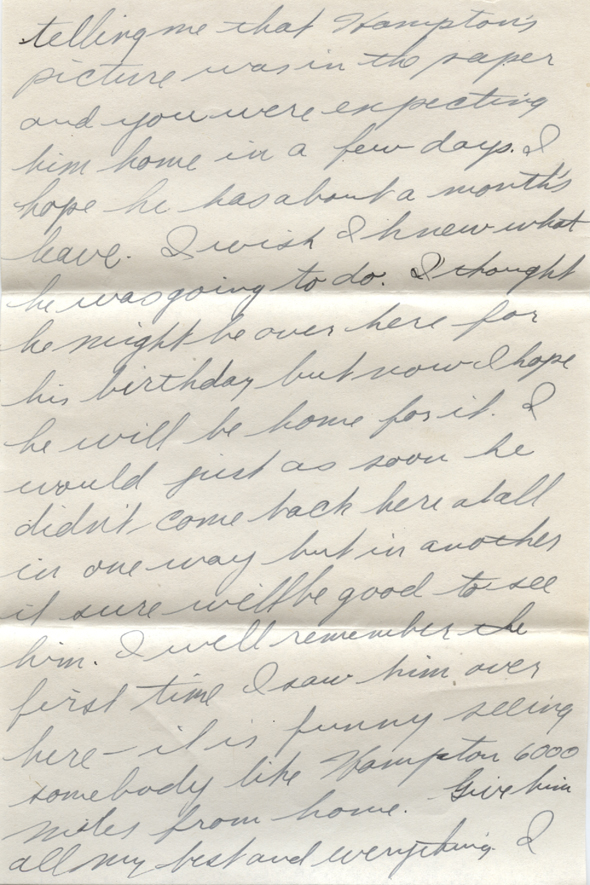 telling me that Hampton's
picture was in the paper
and you were expecting
him home in a few days. I
hope he has about a month's
leave. I wish I knew what
he was going to do. I thought
he might be over here for
his birthday but now I hope
he will be home for it. I
would just as soon he
didn't come back here atall
in one way but in another
it sure will be good to see
him. I well remember the
first time I saw him over
here - it is funny seeing
somebody like Hampton 6000
miles from home. Give him
all my best and everything. I